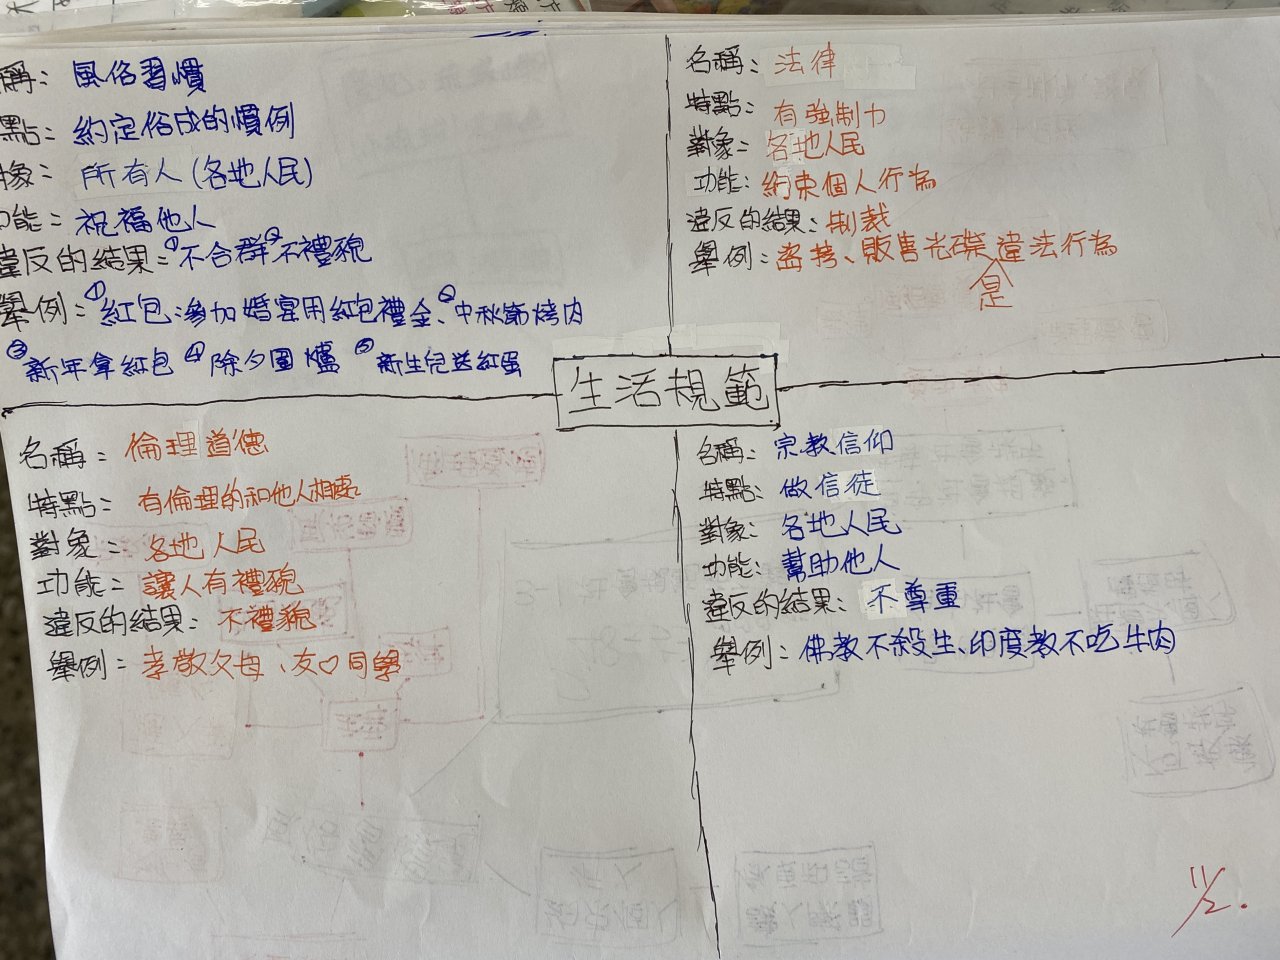 稱：風俗習慣
點：約定俗成的慣例
象：所有人(各地人民)
功能：祝福他人
違反的結果：①不合群②不禮貌
舉例：①紅包：參加婚宴用紅包禮金、②中秋節烤肉
③新年拿紅包④除夕圍爐⑤新生兒送紅蛋
名稱：法律
特點：有強制力
對象：各地人民
功能：約束個人行為
違反的結果：制裁
舉例：盜拷、販售光碟是違法行為
生活規範
名稱：倫理道德
特點：有倫理的和他人相處
對象：各地人民
功能：讓人有禮貌
違反的結果：不禮貌
舉例：孝敬父母、友♡同學
名稱：宗教信仰
特點：做信徒
對象：各地人民
功能：幫助他人
違反的結果：不尊重
舉例：佛教不殺生、印度教不吃牛肉
11/2.